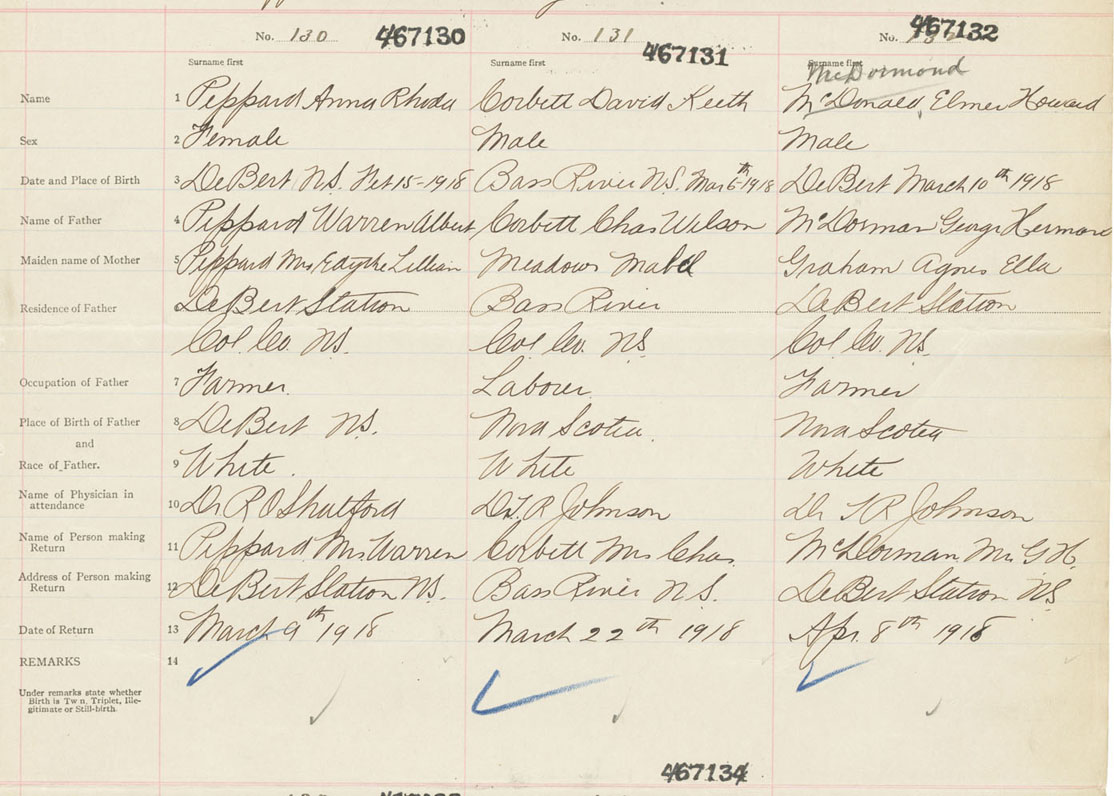 No. 130 467130 No. 131 467131 No. 467132
Surname first Surname first Surname first
McDormond
Name 1 Peppard Anna Rhoda Corbett David Keith McDonald, Elmer Howard
Sex 2 Female Male Male
Date and Place of Birth 3 DeBert N.S. Feb 15-1918 Bass River N.S. Mar 6th-1918 DeBert March 10th 1918
Name of Father 4 Peppard Warren Albert Corbett Chas Wilson McDorman George Herman
Maiden name of Mother 5 Peppard Mrs Edythe Lillian Meadows Mabel Graham Agnes Ella
Residence of Father DeBert Station Bass River DeBert Station
Col. Co. N.S. Col. Co. N.S. Col. Co. N.S.
Occupation of Father 7 Farmer. Laborer. Farmer
Place of Birth of Father 8 DeBert N.S. Nova Scotia. Nova Scotia
and
Race of Father. 9 White. White White
Name of Physician in
attendance 10 Dr R O Shatford Dr T.R Johnson Dr T R Johnson
Name of Person making
Return 11 Peppard Mrs Warren Corbett Mrs Chas. McDorman. Mr. G H.
Address of Person making
Return 12 DeBert Station N.S. Bass River N.S. DeBert Station N.S.
Date of Return 13 March 9th 1918 March 22th 1918 Apr. 8th 1918
REMARKS 14
Under remarks state whether
Birth is Tw n, Triplet, Ille-
gitimate or Still-birth.
467134